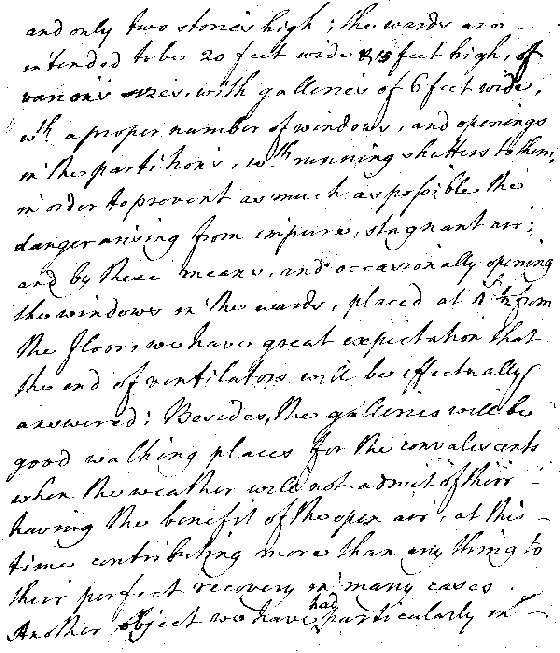 and only two stories high; the wards are
intended to be 20 feet wide & 15 feet high, of
various sizes, with galleries of 6 feet wide,
wth a proper number of windows, and openings
in the partitions, wth running shutters to them,
in order to prevent as much as possible the
danger arising from impure, stagnant air;
and by these means, and occasionally opening
the windows in the wards, placed at from
the floor, we have great expectation that
the end of ventilators will be effectually
answered; Besides, the galleries will be
good walking places for the convalescents
when the weather will not admit of their
having the benefit of the open air, at this
time contributing more than any thing to
their perfect recovery in many cases.
Another object we have had particularly in